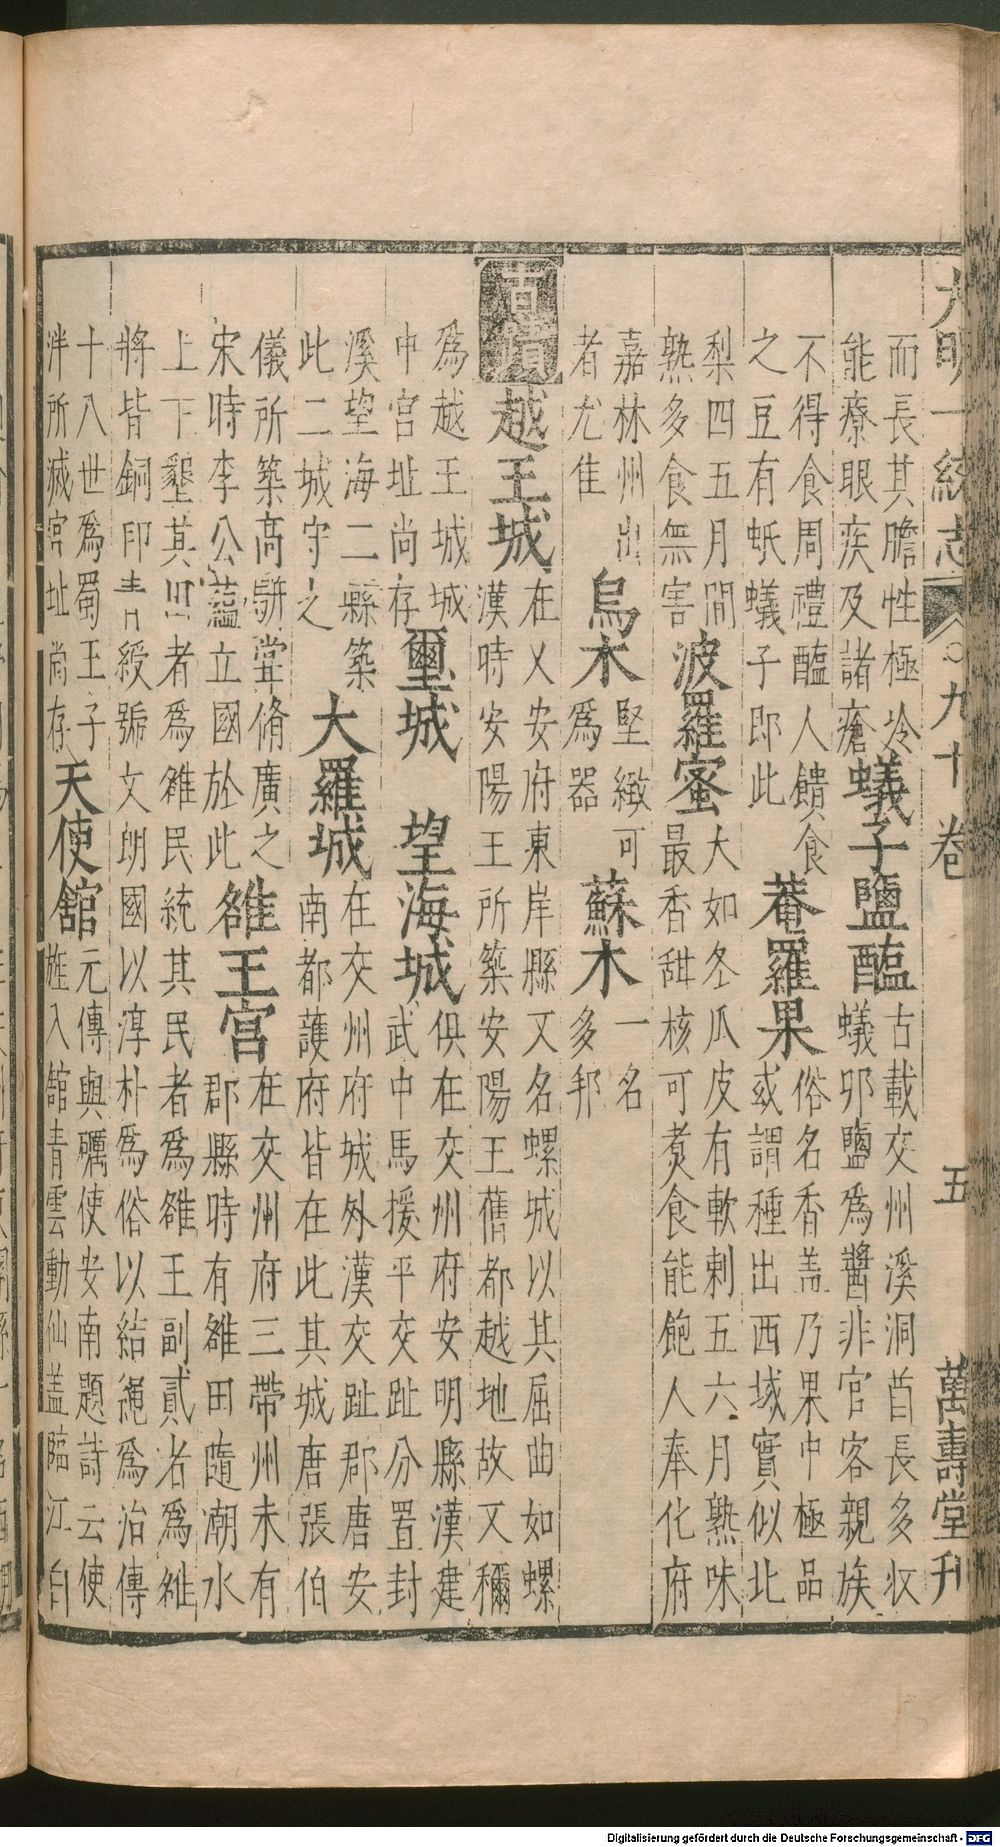 大明一統志 九十卷 五 萬壽堂刋
而長其膽性極冷
能療眼疾及諸瘡
蟻子鹽醢
古載交州溪洞酋長多収
蟻卵鹽爲醬非官客親族
不得食周禮醢人饋食
之豆有蚳蟻子即此
菴羅果
俗名香盖乃果中極品
或謂種出西域實似北
梨四五月間
熟多食無害
波羅蜜
大如冬瓜皮有軟剌五六月熟味
最香甜核可煑食能飽人奉化府
嘉林州出
者尤佳
烏木
堅緻可
爲器
蘇木
一名
多邦
古蹟
越王城
在乂安府東岸縣又名螺城以其屈曲如螺
漢時安陽王所築安陽王舊都越地故又稱
爲越王城城
中宮址尚存
璽城
望海城
俱在交州府安明縣漢建
武中馬援平交趾分置封
溪望海二縣築
此二城守之
大羅城
在交州府城外漢交趾郡唐安
南都護府皆在此其城唐張伯
儀所築高駢嘗脩廣之
宋時李公蘊立國於此
雒王宮
在交州府三帶州未有
郡縣時有雒田隨潮水
上下墾其田者爲雒民統其民者爲雒王副貳者爲雒
將皆銅印青綬號文朗國以淳朴爲俗以結繩爲治傳
十八世爲蜀王子
泮所滅宮址尚存
天使舘
元傳與礪使安南題詩云使
旌入舘青雲動仙盖臨江白
Digitalisierung gefördert durch die Deutsche Forschungsgemeinschaft - DFG